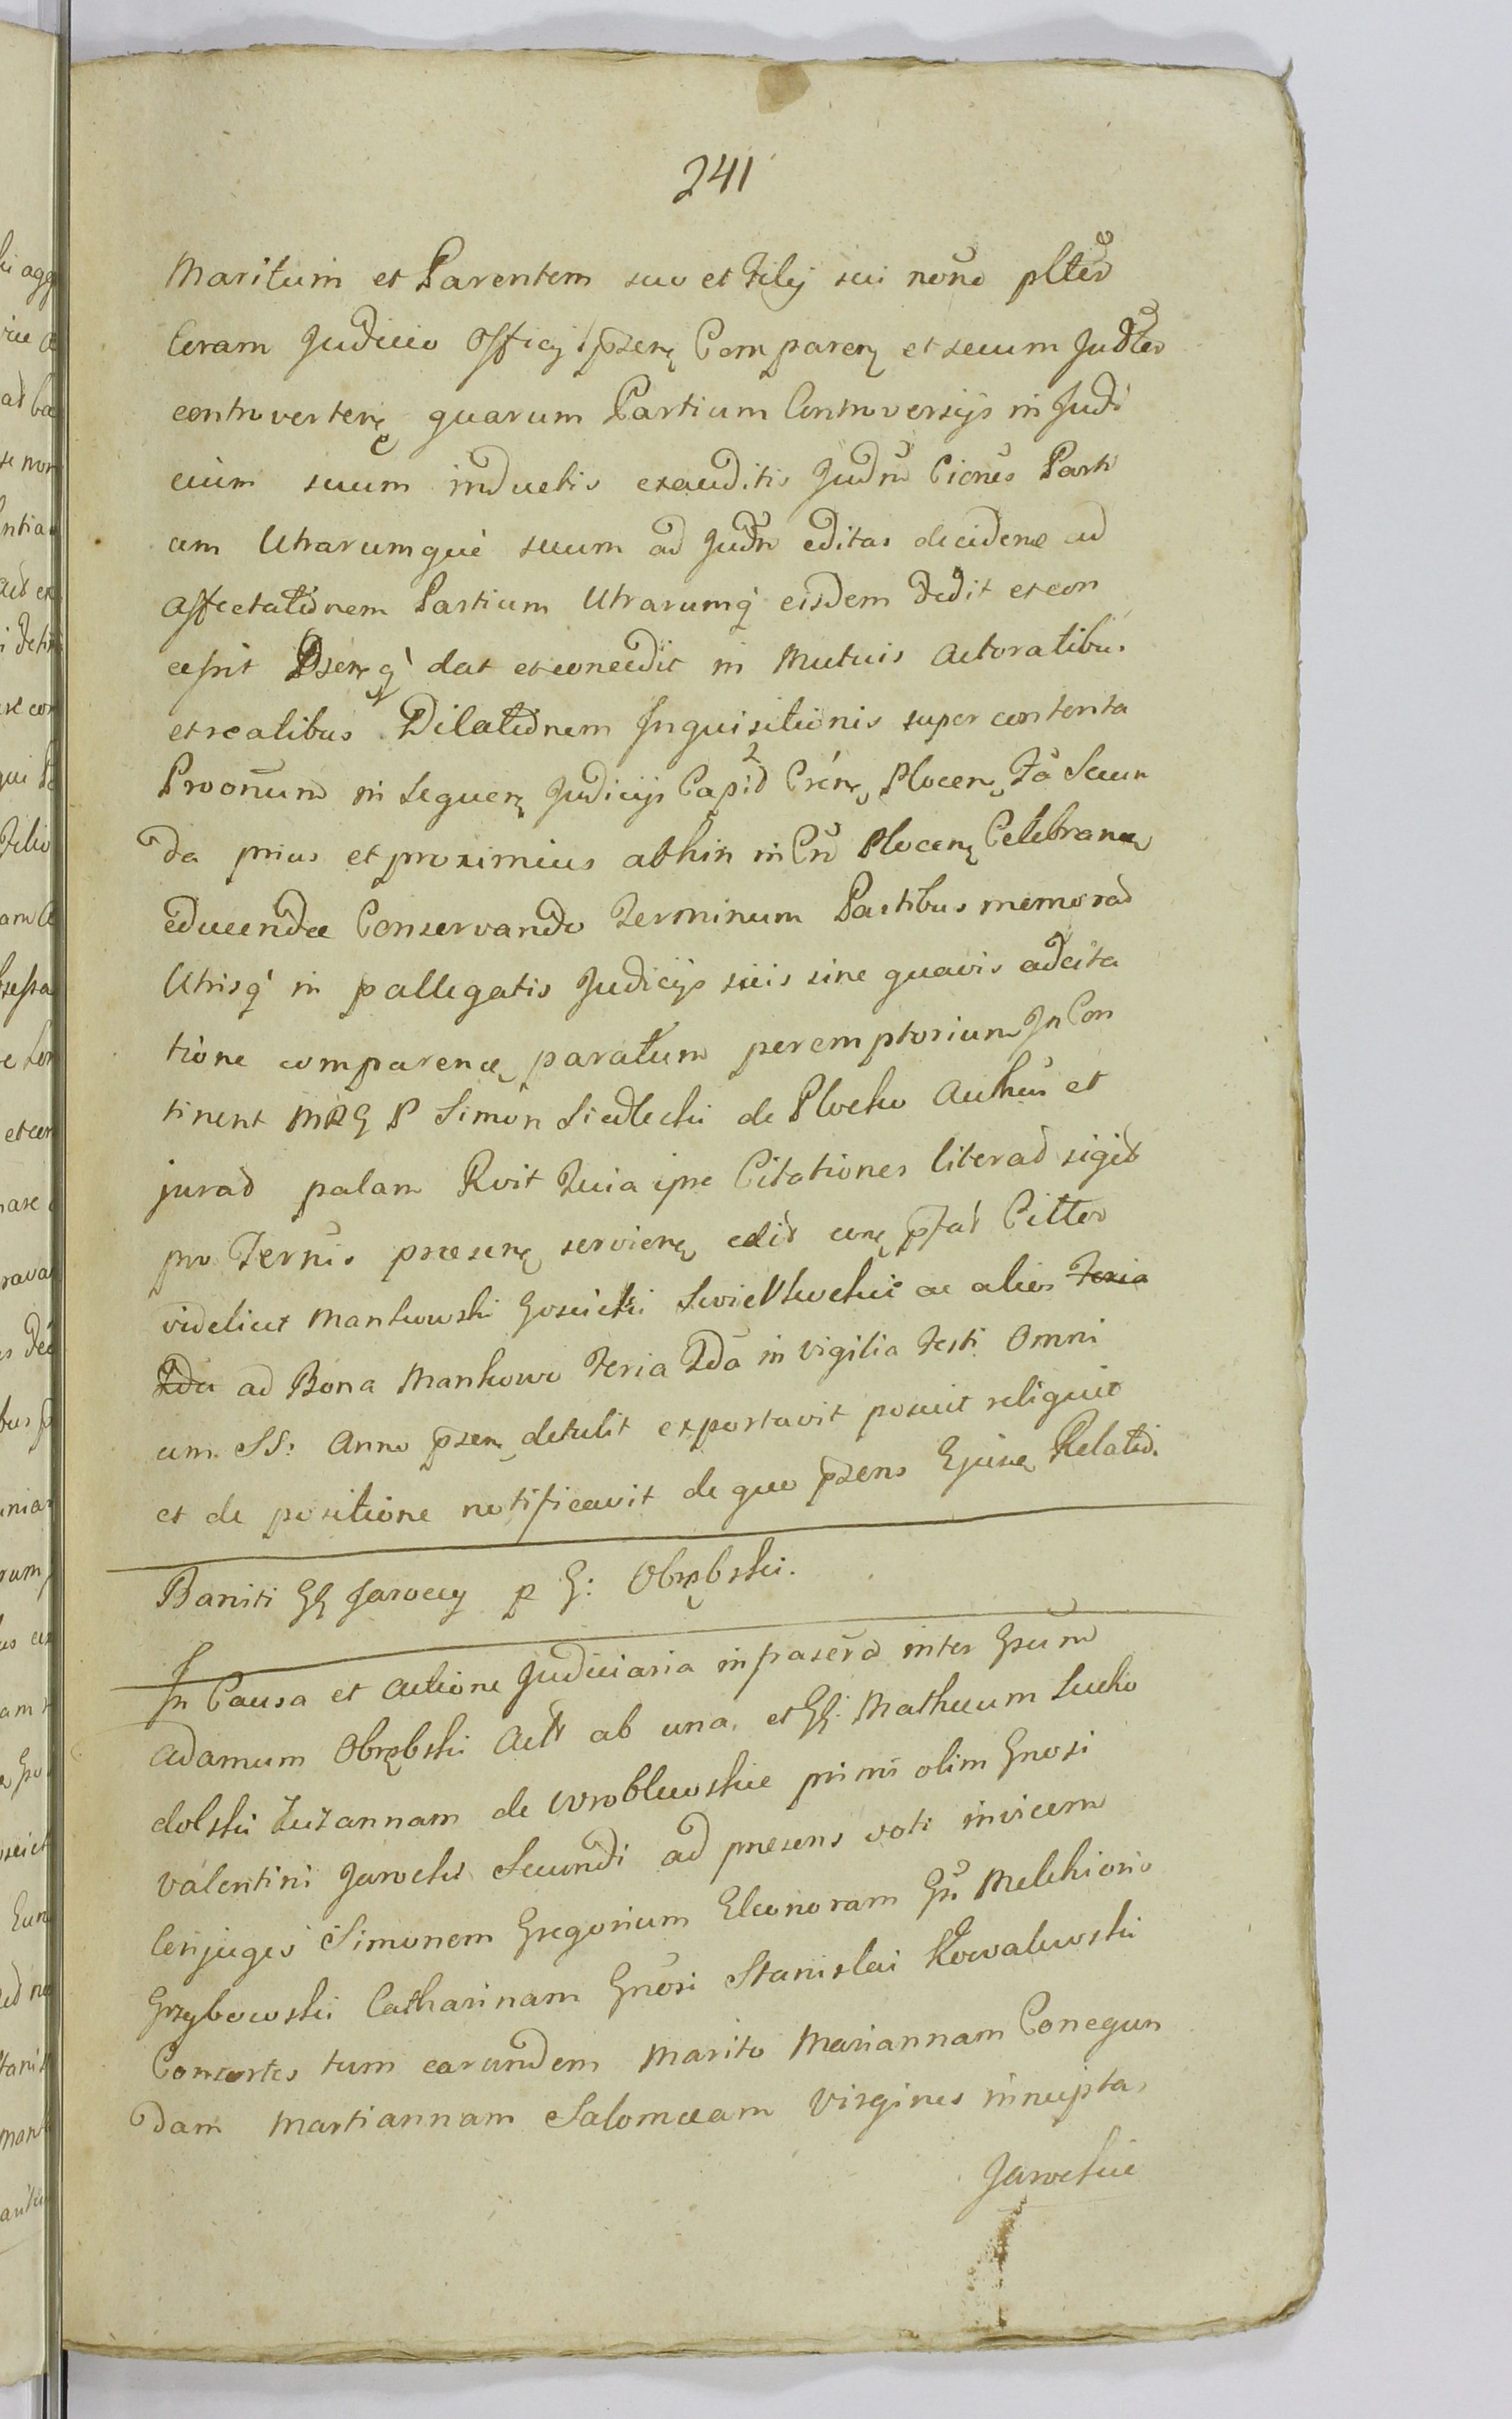 241
Maritum et Parentem suo et Filij sui noñe plter
Coram Judicio Officij psenę Comparenę et secum Judter
controvertenę quarum Partium Controversijs in Judi
cium suum inductis exauditis Judm Ciones Parti
um Utrarumque suum ad Judm editas decidenæ ad
affectationem Partium Utrarumq eisdem dedit et con
cessit Psenęq dat et concedit in Mutuis Actoralibus
et realibus Dilationem Inquisitionis super contenta
Prooñum in sequenę Judicijs Capid Crenę Plocenę Fã Secun
da prius et proximius abhin in Crõ Plocenę Celebranæ
educendæ Conservando Terminum Partibus memorad
Utrisq in pallegatis Judicijs suis sine quavis adcita
tione comparenæ paratum peremptorium In Con
tinent MRG P Simon Siedlecki de Plocko Authus et
jurad palam Rvit Quia ipse Citationes literad sigid
pro Ternis præsenę servienę edid conę pfat Citter
videlicet Mankowski Gosicki Swietkwskie ac alios Feria
2da ad Bona Mankowo Feria 2da in vigilia Festi Omni
um SS: Anno psenę detulit exportavit posuit reliquit
et de positione notificavit de quo psens Ejusę Relatio.
Baniti GG Jaroccy p G: Obrębski.
In Causa et actione Judiciaria infraserã inter Gsum
Adamum Obrębski Actt ab una. et GG: Matheum Sucho
dolski Zuzannam de Wroblewskie primi olim Gnosi
Valentini Jarocki Secundi ad præsens voti invicem
Conjuges Simonem Gregorium Eleonoram Gñ Melchioris
Grzybowski Catharinam Gnõsi Stanislai Kowalewski
Consortes tum earundem Marito Mariannam Conegun
dam Martiannam Salomæam Virgines innupta,
Jarockie